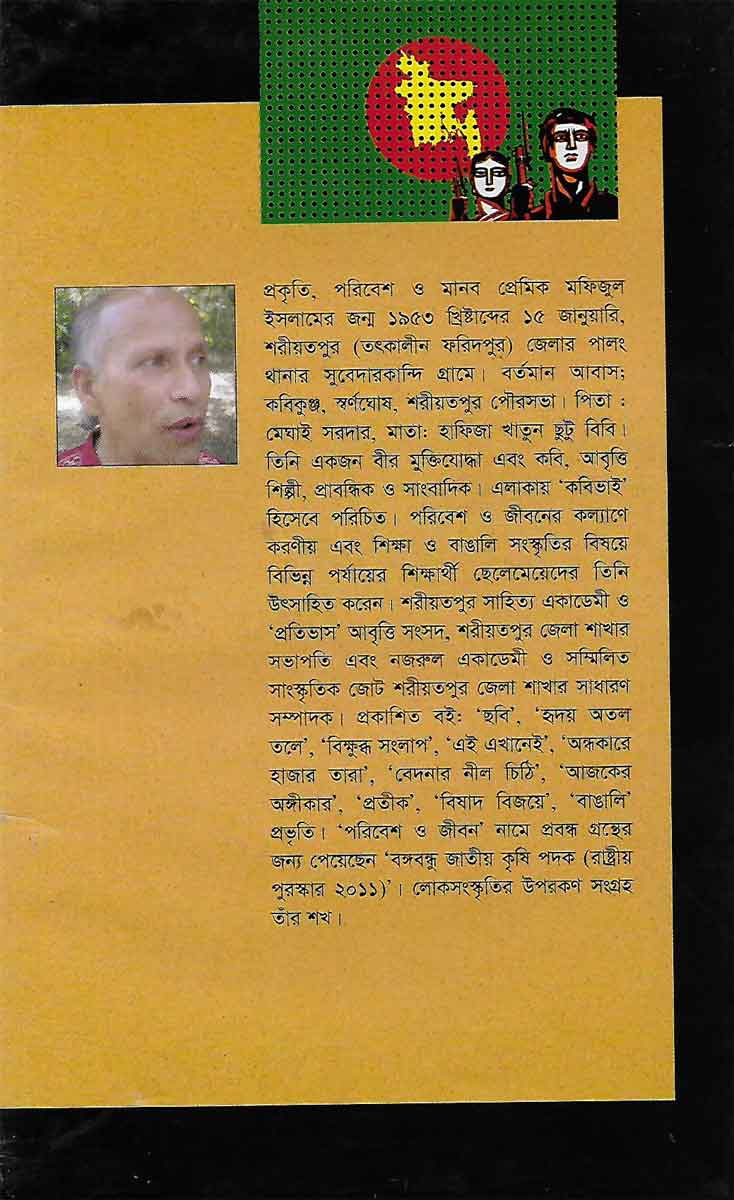 প্রকৃতি, পরিবেশ ও মানব প্রেমিক মফিজুল
ইসলামের জন্ম ১৯৫৩ খ্রিষ্টাব্দের ১৫ জানুয়ারি,
শরীয়তপুর (তৎকালীন ফরিদপুর) জেলার পালং
থানার সুবেদারকান্দি গ্রামে। বর্তমান আবাস;
কবিকুঞ্জ, স্বর্ণঘোষ, শরীয়তপুর পৌরসভা। পিতা :
মেঘাই সরদার, মাতা: হাফিজা খাতুন ছুটু বিবি।
তিনি একজন বীর মুক্তিযোদ্ধা এবং কবি, আবৃত্তি
শিল্পী, প্রাবন্ধিক ও সাংবাদিক। এলাকায় ‘কবিভাই’
হিসেবে পরিচিত। পরিবেশ ও জীবনের কল্যাণে
করণীয় এবং শিক্ষা ও বাঙালি সংস্কৃতির বিষয়ে
বিভিন্ন পর্যায়ের শিক্ষার্থী ছেলেমেয়েদের তিনি
উৎসাহিত করেন। শরীয়তপুর সাহিত্য একাডেমী ও
‘প্রতিভাস’ আবৃত্তি সংসদ, শরীয়তপুর জেলা শাখার
সভাপতি এবং নজরুল একাডেমী ও সম্মিলিত
সাংস্কৃতিক জোট শরীয়তপুর জেলা শাখার সাধারণ
সম্পাদক। প্রকাশিত বই: ‘ছবি’, ‘হৃদয় অতল
তলে’, ‘বিক্ষুব্ধ সংলাপ’, ‘এই এখানেই’, ‘অন্ধকারে
হাজার তারা’, ‘বেদনার নীল চিঠি’, ‘আজকের
অঙ্গীকার’, ‘প্রতীক’, ‘বিষাদ বিজয়ে’, ‘বাঙালি’
প্রভৃতি। ‘পরিবেশ ও জীবন’ নামে প্রবন্ধ গ্রন্থের
জন্য পেয়েছেন ‘বঙ্গবন্ধু জাতীয় কৃষি পদক (রাষ্ট্রীয়
পুরস্কার ২০১১)’। লোকসংস্কৃতির উপরকণ সংগ্রহ
তাঁর শখ।